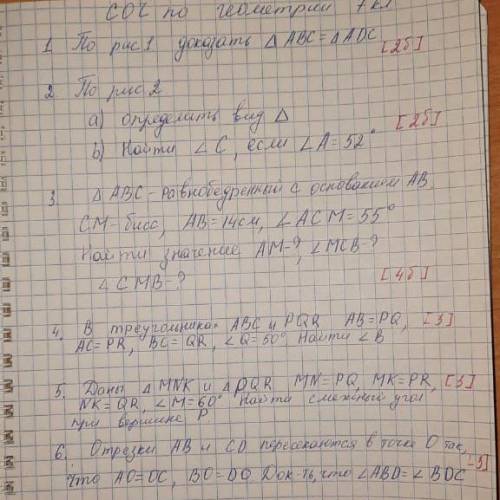 СОЧ по геометрии 7 кл
1. По рис 1 доказать △ ABC = △ ADC
[2б]
2. По рис 2
а) определить вид △
b) Найти ∠C, если ∠A = 52° [2б]
3. △ ABC - равнобедренный с основанием AB
CM - бисс, AB = 14 см, ∠ACM = 55°
Найти значение AM-?, ∠MCB-?
∠CMB-? [4б]
4. В треугольниках ABC и PQR AB = PQ, [3]
AC = PR, BC = QR, ∠Q = 50° Найти ∠B
5. Даны △ MNK и △PQR MN = PQ, MK = PR, [3]
NK = QR, ∠M = 60° Найти смежный угол
при вершине P
6. Отрезки AB и CD пересекаются в точке O так, [3]
что AO = OC, BO = DO Док-ть, что ∠ABD = ∠BDC